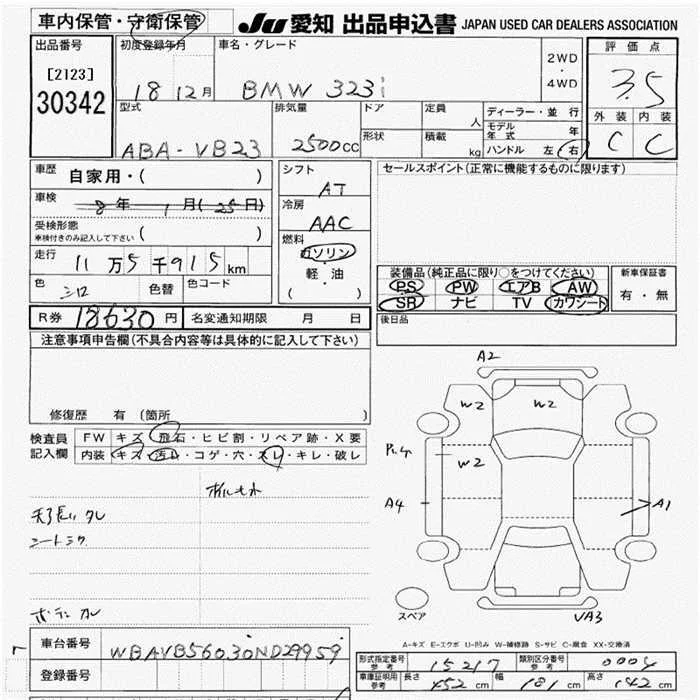 車内保管・守衛保管
JU 愛知 出品申込書 JAPAN USED CAR DEALERS ASSOCIATION
出品番号 初度登録年月 車名・グレード 2WD・4WD 評価点
[2123]
30342
18 12月 BMW 323i 3.5
型式 排気量 ドア 定員 人 ディーラー・並行 外装 内装
モデル年式 年
ABA-VB23 2500cc 形状 積載 kg ハンドル 左 右 C C
車歴 自家用・( ) シフト AT セールスポイント(正常に機能するものに限ります)
車検 8年 1月(25日) 冷房 AAC
受検形態 ( )
車検付きのみ記入して下さい
燃料 ガソリン 軽・油 ( )
走行 11万5千915km
色 シロ 色替 色コード
装備品(純正品に限り○をつけてください) 新車保証書
PS PW エアB AW 有・無
SR ナビ TV カワシート
R券 18630円 名変通知期限 月 日 後日品
注意事項申告欄(不具合内容等は具体的に記入して下さい)
修復歴 有 (箇所 )
検査員記入欄 FW キズ・飛石・ヒビ割・リペア跡・X要
内装 キズ・汚レ・コゲ・穴・スレ・キレ・破レ
A2
W2 W2
W2
A4 A1
スペア VA3
A-キズ E-エクボ U-凹み W-補修跡 S-サビ C-腐食 XX-交換済
車台番号 WBAVB56030ND29959
登録番号
形式指定番号 参考 15217 類別区分番号 参考 0004
車庫証明用 参考 長さ 452cm 幅 181cm 高さ 142cm